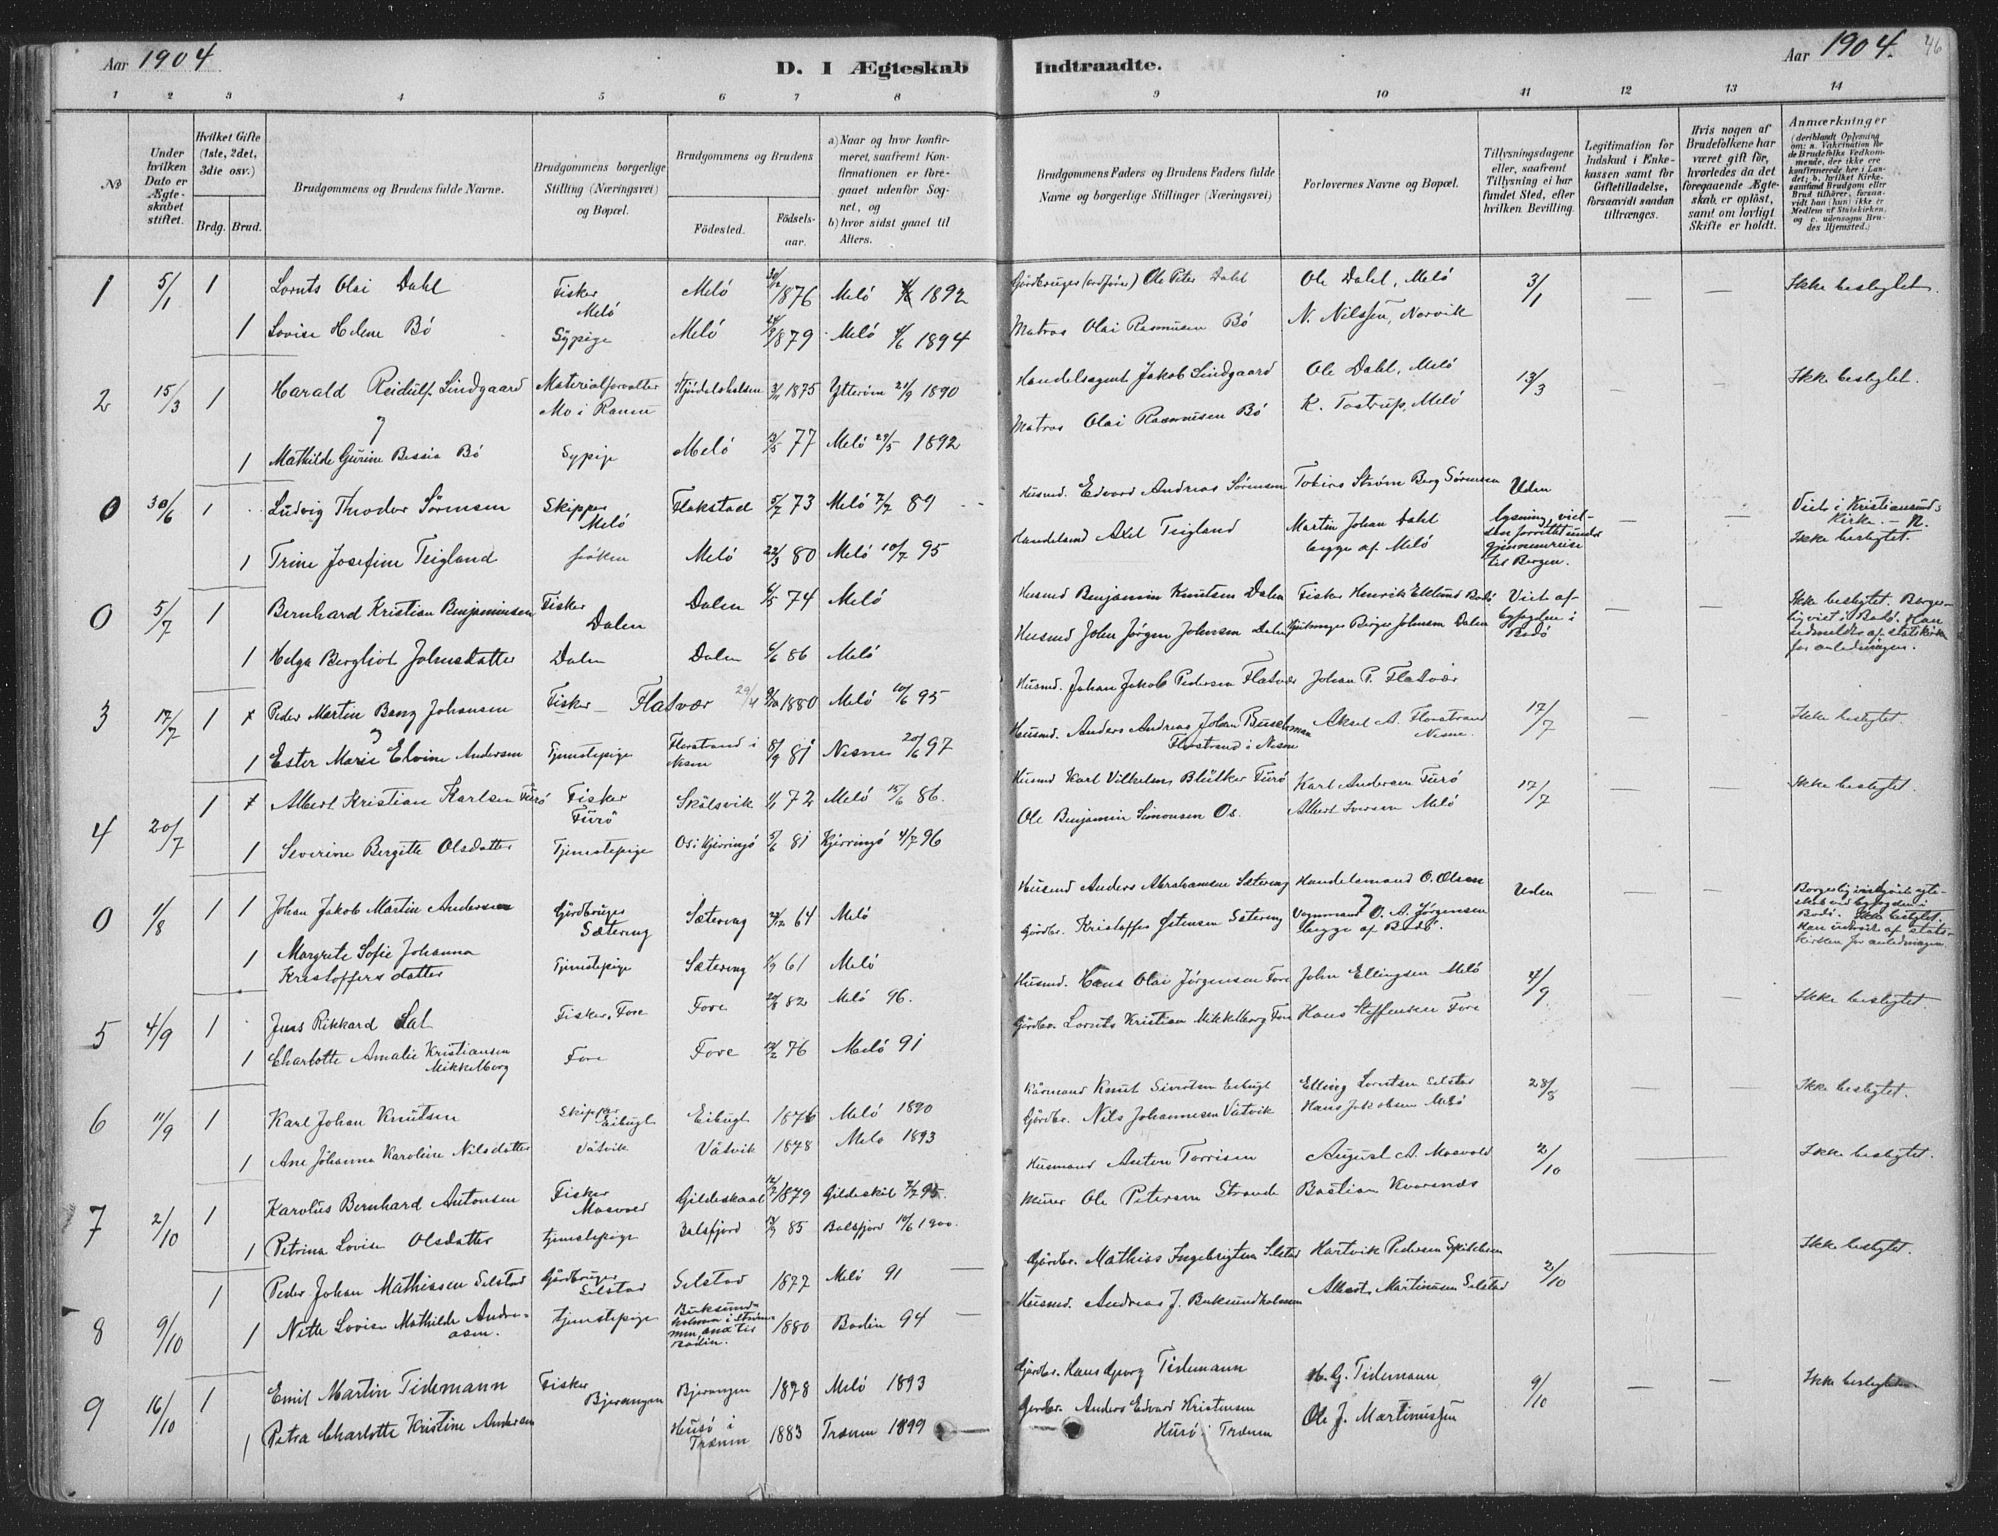 Aar 1904
D. I Ægteskab
Indtraadte.
Aar 1904.
46
1 2 3 4 5 6 7 8 9 10 11 12 13 14
№
Under hvilken Dato er Ægteskabet stiftet.
Hvilket Gifte (1ste, 2det, 3die osv.)
Brdg. Brud.
Brudgommens og Brudens fulde Navne.
Brudgommens borgerlige Stilling (Næringsvei) og Bopæl.
Brudgommens og Brudens
Fødested.
Fødselsaar.
a) Naar og hvor konfirmeret, saafremt Konfirmationen er foregaaet udenfor Sognet, og
b) hvor sidst gaaet til Alters.
Brudgommens Faders og Brudens Faders fulde Navne og borgerlige Stillinger (Næringsvei)
Forlovernes Navne og Bopæl.
Tillysningsdagene eller, saafremt Tillysning ei har fundet Sted, efter hvilken Bevilling.
Legitimation for Indskud i Enkekassen samt for Giftetilladelse, forsaavidt saadan tiltrænges.
Hvis nogen af Brudefolkene har været gift før, hvorledes da det foregaaende Ægteskab er opløst, samt om lovligt Skifte er holdt.
Anmærkninger
(deriblandt Oplysning om: a. Vakcination for de Brudefolks Vedkommende, der ikke ere konfirmerede her i Landet; b. hvilket Kirkesamfund Brudgom eller Brud tilhører, forsaavidt han (hun) ikke er Medlem af Statskirken, og c. udensogns Brudes Hjemsted.)
1 5/1 1 Loruts Olai Dahl Fisker Melö Melö 1876 Melö 1892 Ole Peter Dahl Ole Dahl, Melö 3/1 — — Ikke beslegtet.
1 Lovise Helene Bö Sypige Melö 1879 Melö 1894 Matros Olai Rasmusen Bö N. Nilssen, Norvik
2 15/3 1 Harald Reidulf Lindgaard Materialforvalter Mo i Ranen 1875 1890 Handelsagent Jakob Lindgaard Ole Dahl, Melö 13/3 Ikke beslegtet.
1 Mathilde Gurine Bessia Bö Sypige Melö 77 Melö 29/5 1892 Matros Olai Rasmusen Bö K. Tostrup, Melö
0 30/6 1 Ludvig Theodor Sörensen Skipper Melö Flakstad 73 Melö 7/7 89 Husmd. Edvard Andreas Sörensen Tobias Ström Berg Sörensen Uden lysning, Vied i Kristiansunds Kirke. — N.
1 Trine Josefine Teigland fröken Melö 22/3 80 Melö 10/7 95 Handelsmd Axel Teigland Martin Johan Dahl begge af Melö til Bergen. Ikke beslegtet.
0 5/7 1 Bernhard Kristian Benjaminsen Fisker Dalen Dalen 74 Melö Husmd Benjamin Knutsen Dalen Fisker Henrik Eklund Bodö Viet af byfogden i Bodö — — Ikke beslegtet. Borgerlig viet i Bodö. Han udmeldt af statskirken for anledningen.
1 Helga Bergliot Johnsdatter Dalen Dalen 6/6 86 Melö Husmd John Jörgen Johnsen Dalen Birger Johnsen Dalen
3 17/7 1 + Peder Martin Bang Johansen Fisker — Flatvær 29/4 1880 Melö 10/6 95 Husmd. Johan Jakob Pedersen Flatvær Johan P. Flatvær 17/7 — — Ikke beslegtet.
1 Ester Marie Elvine Andersen Tjenestepige Florstrand i Nesne 8/9 81 Nesne 20/6 97 Husmd. Anders Andreas Johan Buschman Florstrand i Nesne Aksel A. Florstrand Nesne.
4 20/7 1 + Albert Kristian Karlsen Furö Fisker Furö Skålsvik 72 Melö 15/6 86. Husmd Karl Vilhelm Blütker Furö Karl Andersen Furö 17/7 — — Ikke beslegtet.
1 Severine Bergitte Olsdatter Tjenestepige Os i Kjerringö 5/6 81 Kjerringö 4/7 96 Ole Benjamin Simonsen Os. Albert Iversen Melö
0 1/8 1 1 Johan Jakob Martin Andersen Gårdbruger Sætering Sætering 64 Melö Husmd Anders Abrahamsen Sætering Handelsmand O. Olsen Uden — — Borgerlig ved byfogden i Bodö. Ikke beslegtet. Han udtrådt af statskirken for anledningen.
1 Margrete Sofie Johanna Kristoffersdatter Tjenestepige Sætering 61 Melö Gårdbr. Kristoffer Östensen Sætering Vognmand O. A. Jörgensen begge af Bodö.
5 4/9 1 Jens Rikkard Sal Fisker, Fore Fore 82 Melö 96. Husmd. Hans Olai Jörgensen Fore John Ellingsen Melö 4/9 — — Ikke beslegtet
1 Charlotte Amalie Kristiansen Mikkelborg Fore Fore 76 Melö 91 Gårdbr. Loruts Kristian Mikkelborg Fore Hans Steffensen Fore
6 11/9 1 Karl Johan Knutsen Skipper Eibugt Eibugt 1876 Melö 1890 Kårmand Knut Sivertsen Eibugt Elling Lorntsen Selstad 28/8 — — Ikke beslegtet.
1 Ane Johanna Karoline Nilsdatter Våtvik Våtvik 1878 Melö 1893 Gårdbr. Nils Johannesen Våtvik Hans Jakobsen Melö
7 2/10 1 Karolus Bernhard Antonsen Fisker Mosvold Gildeskaal 1879 Gildeskål 95. Husmand Anton Torrisen August A. Mosvold 2/10 Ikke beslegtet.
1 Petrina Lovise Olsdatter tjenestepige Balsfjord 85 Balsfjord 10/6 1900. Murer Ole Petersen Strande Bastian Kvarsnæs
8 9/10 1 Peder Johan Mathissen Selstad Gårdbruger Selstad Selstad 1877 Melö 91 — Gårdbr. Mathias Ingebrigtsen Selstad Hartvik Pedersen Spildern 2/10 Ikke beslegtet.
1 Nette Lovise Mathilde Andreasen. tjenestepige Buksundholmen i Bodin. 1880 Bodin 94 — Husmd. Andreas J. Buksundholmen Albert Martinusen Selstad
9 16/10 1 Emil Martin Tidemann Fisker Bjerangen Bjerangen 1878 Melö 1893 Gårdbr. Hans Georg Tidemann H. G. Tidemann 9/10 — — Ikke beslegtet
1 Petra Charlotte Kristine Andersen Husö i Trænen 1883 Trænen 1899 Gårdbr. Anders Edvard Kristensen Husö i Trænen Ole J. Martinussen